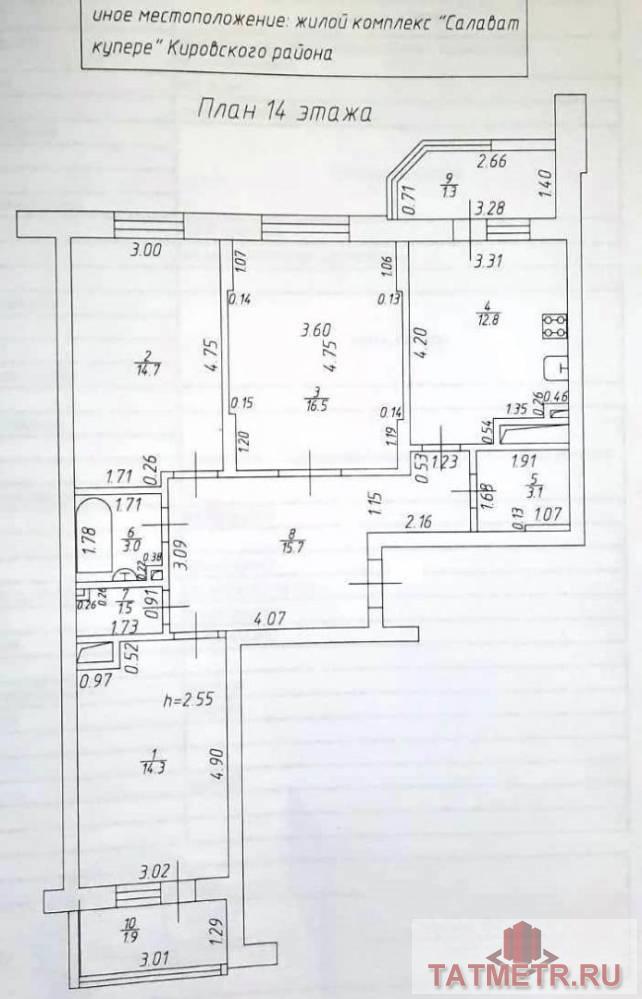 иное местоположение: жилой комплекс "Салават
купере" Кировского района
План 14 этажа
2.66
9
1.3
0.71
1.40
3.28
3.00
1.07
1.06
3.31
0.14
0.13
4
12.8
3.60
4.20
2
14.7
4.75
4.75
3
16.5
0.15
0.14
1.35
0.26
0.46
1.20
1.19
0.54
1.71
0.26
0.53
1.23
1.91
1.71
1.68
5
3.1
1.78
6
3.0
1.15
2.16
0.13
1.07
3.09
8
15.7
0.22
0.38
0.26
0.26
7
1.5
0.91
1.73
4.07
0.52
0.97
h=2.55
1
14.3
4.90
3.02
10
1.9
1.29
3.01
TATMETR.RU